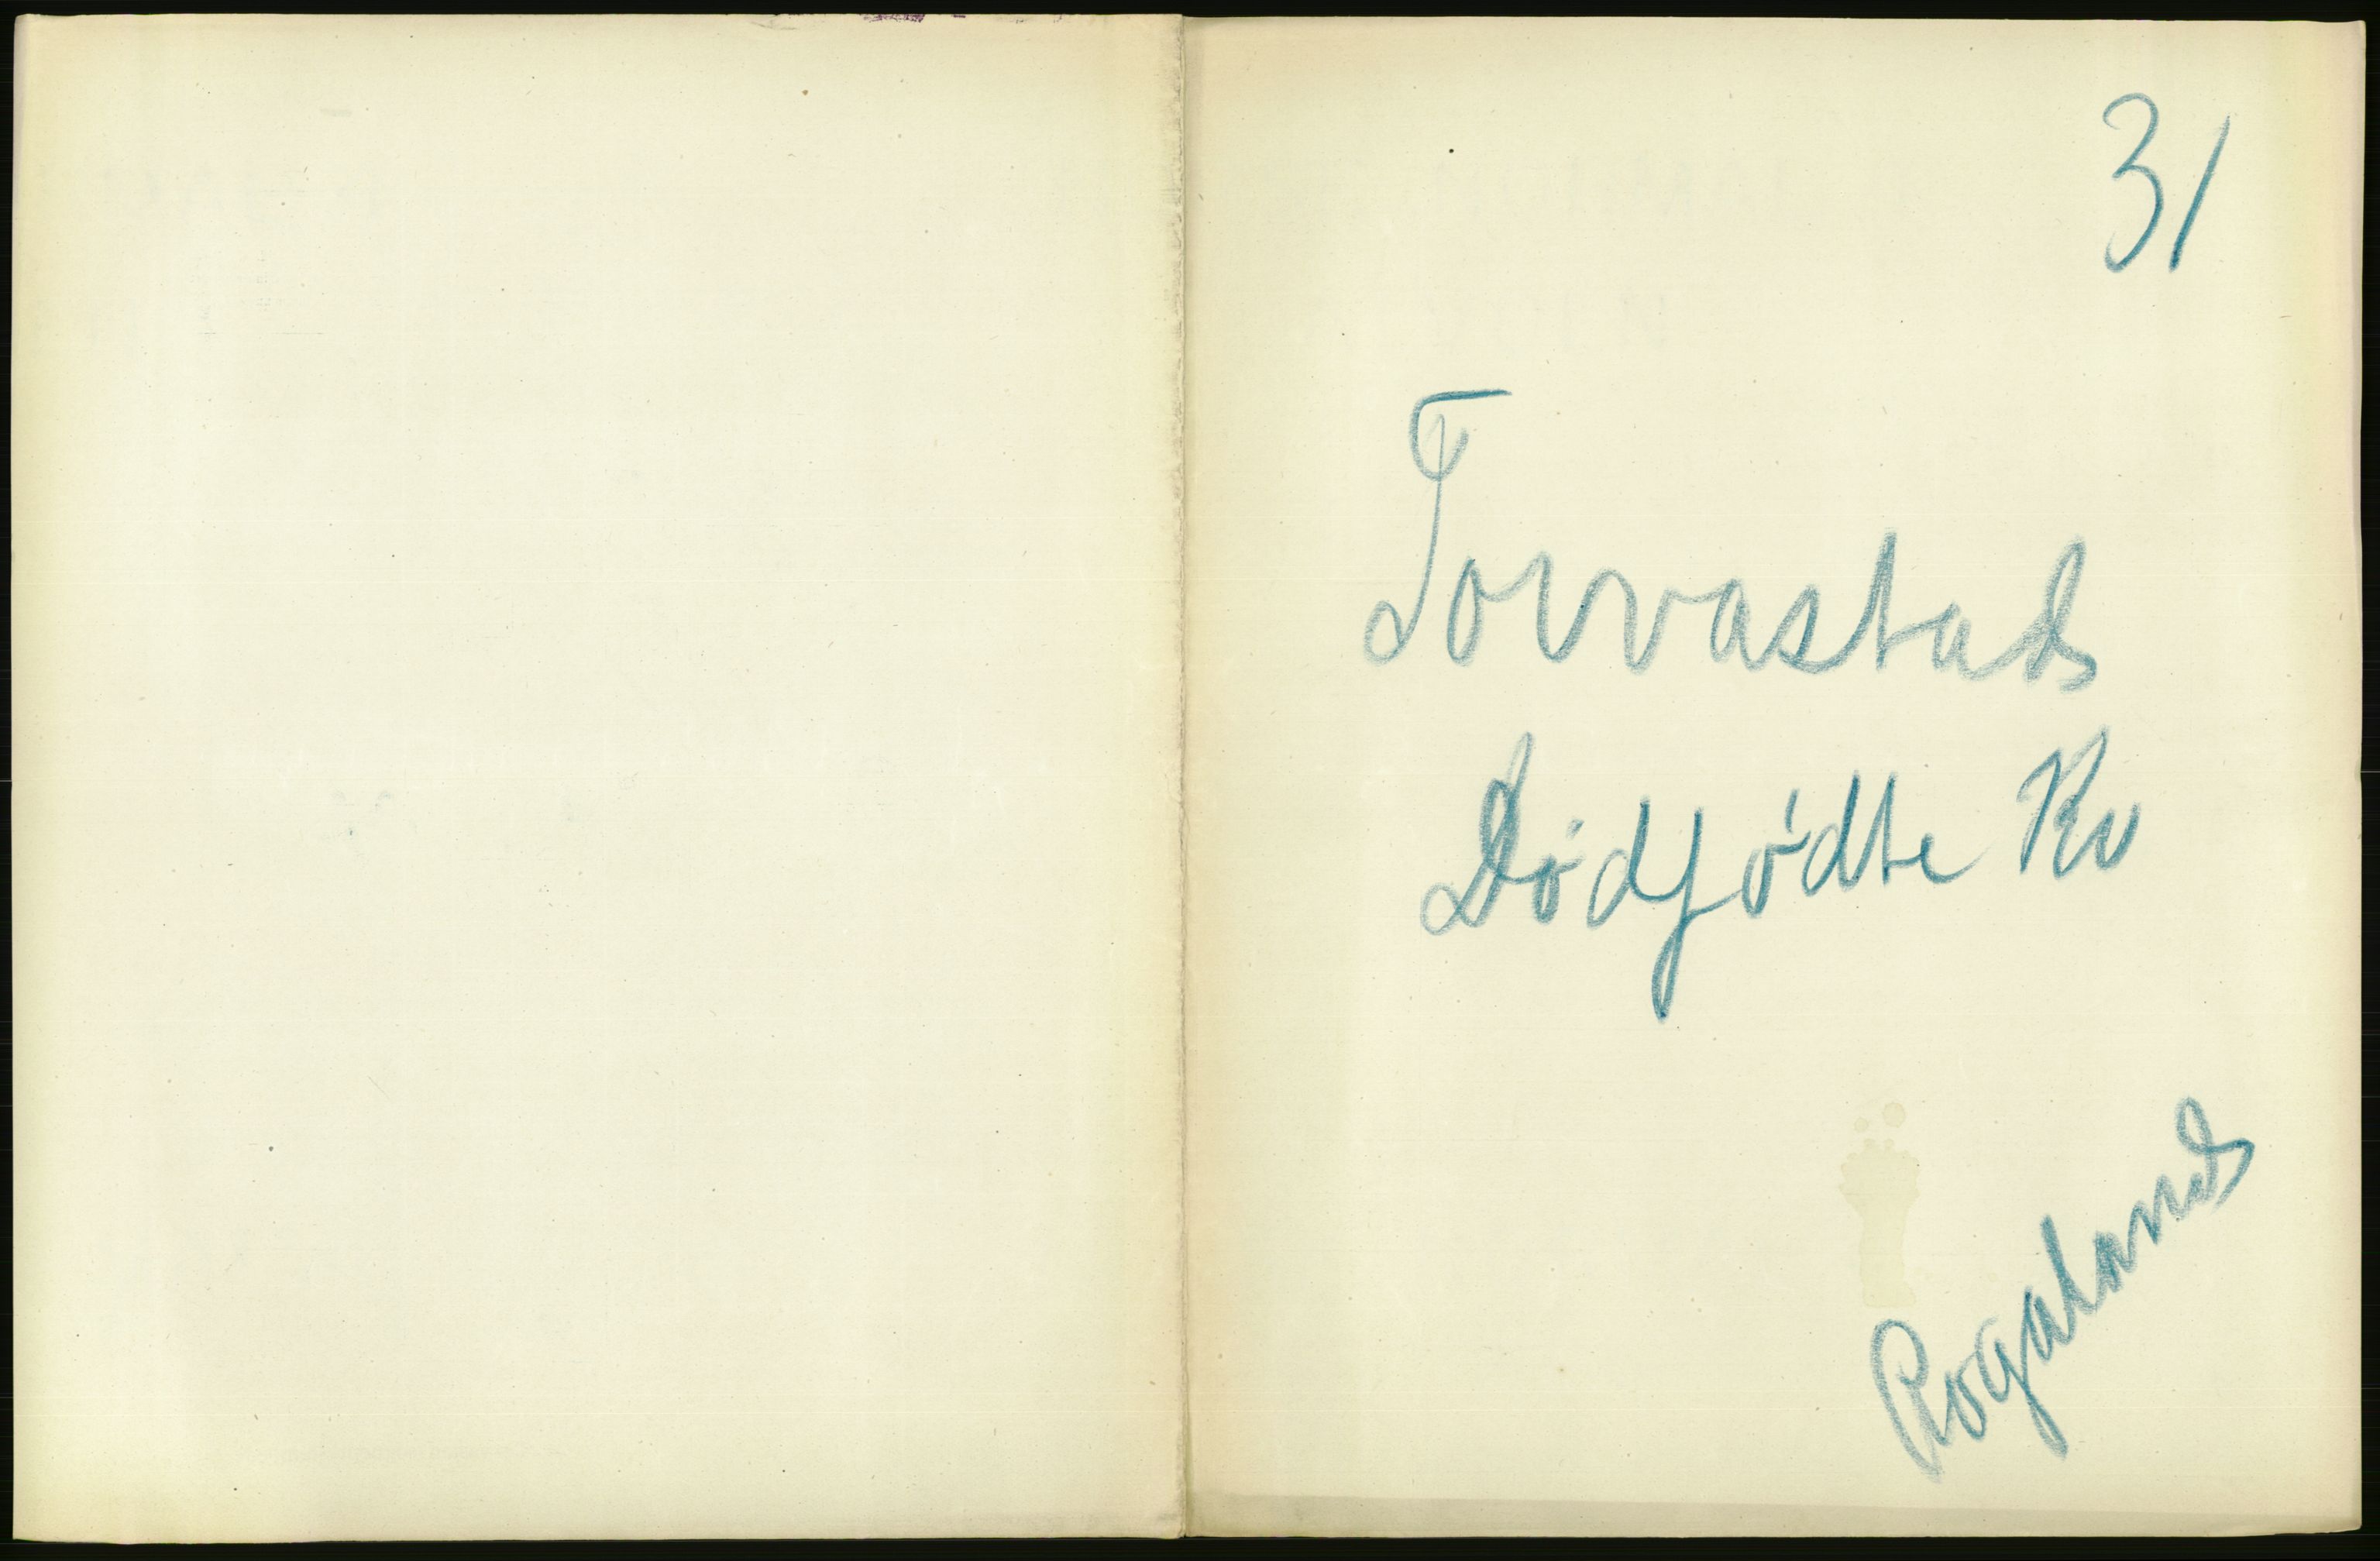 31
Torvastad
Dødfødte Kv
Rogaland